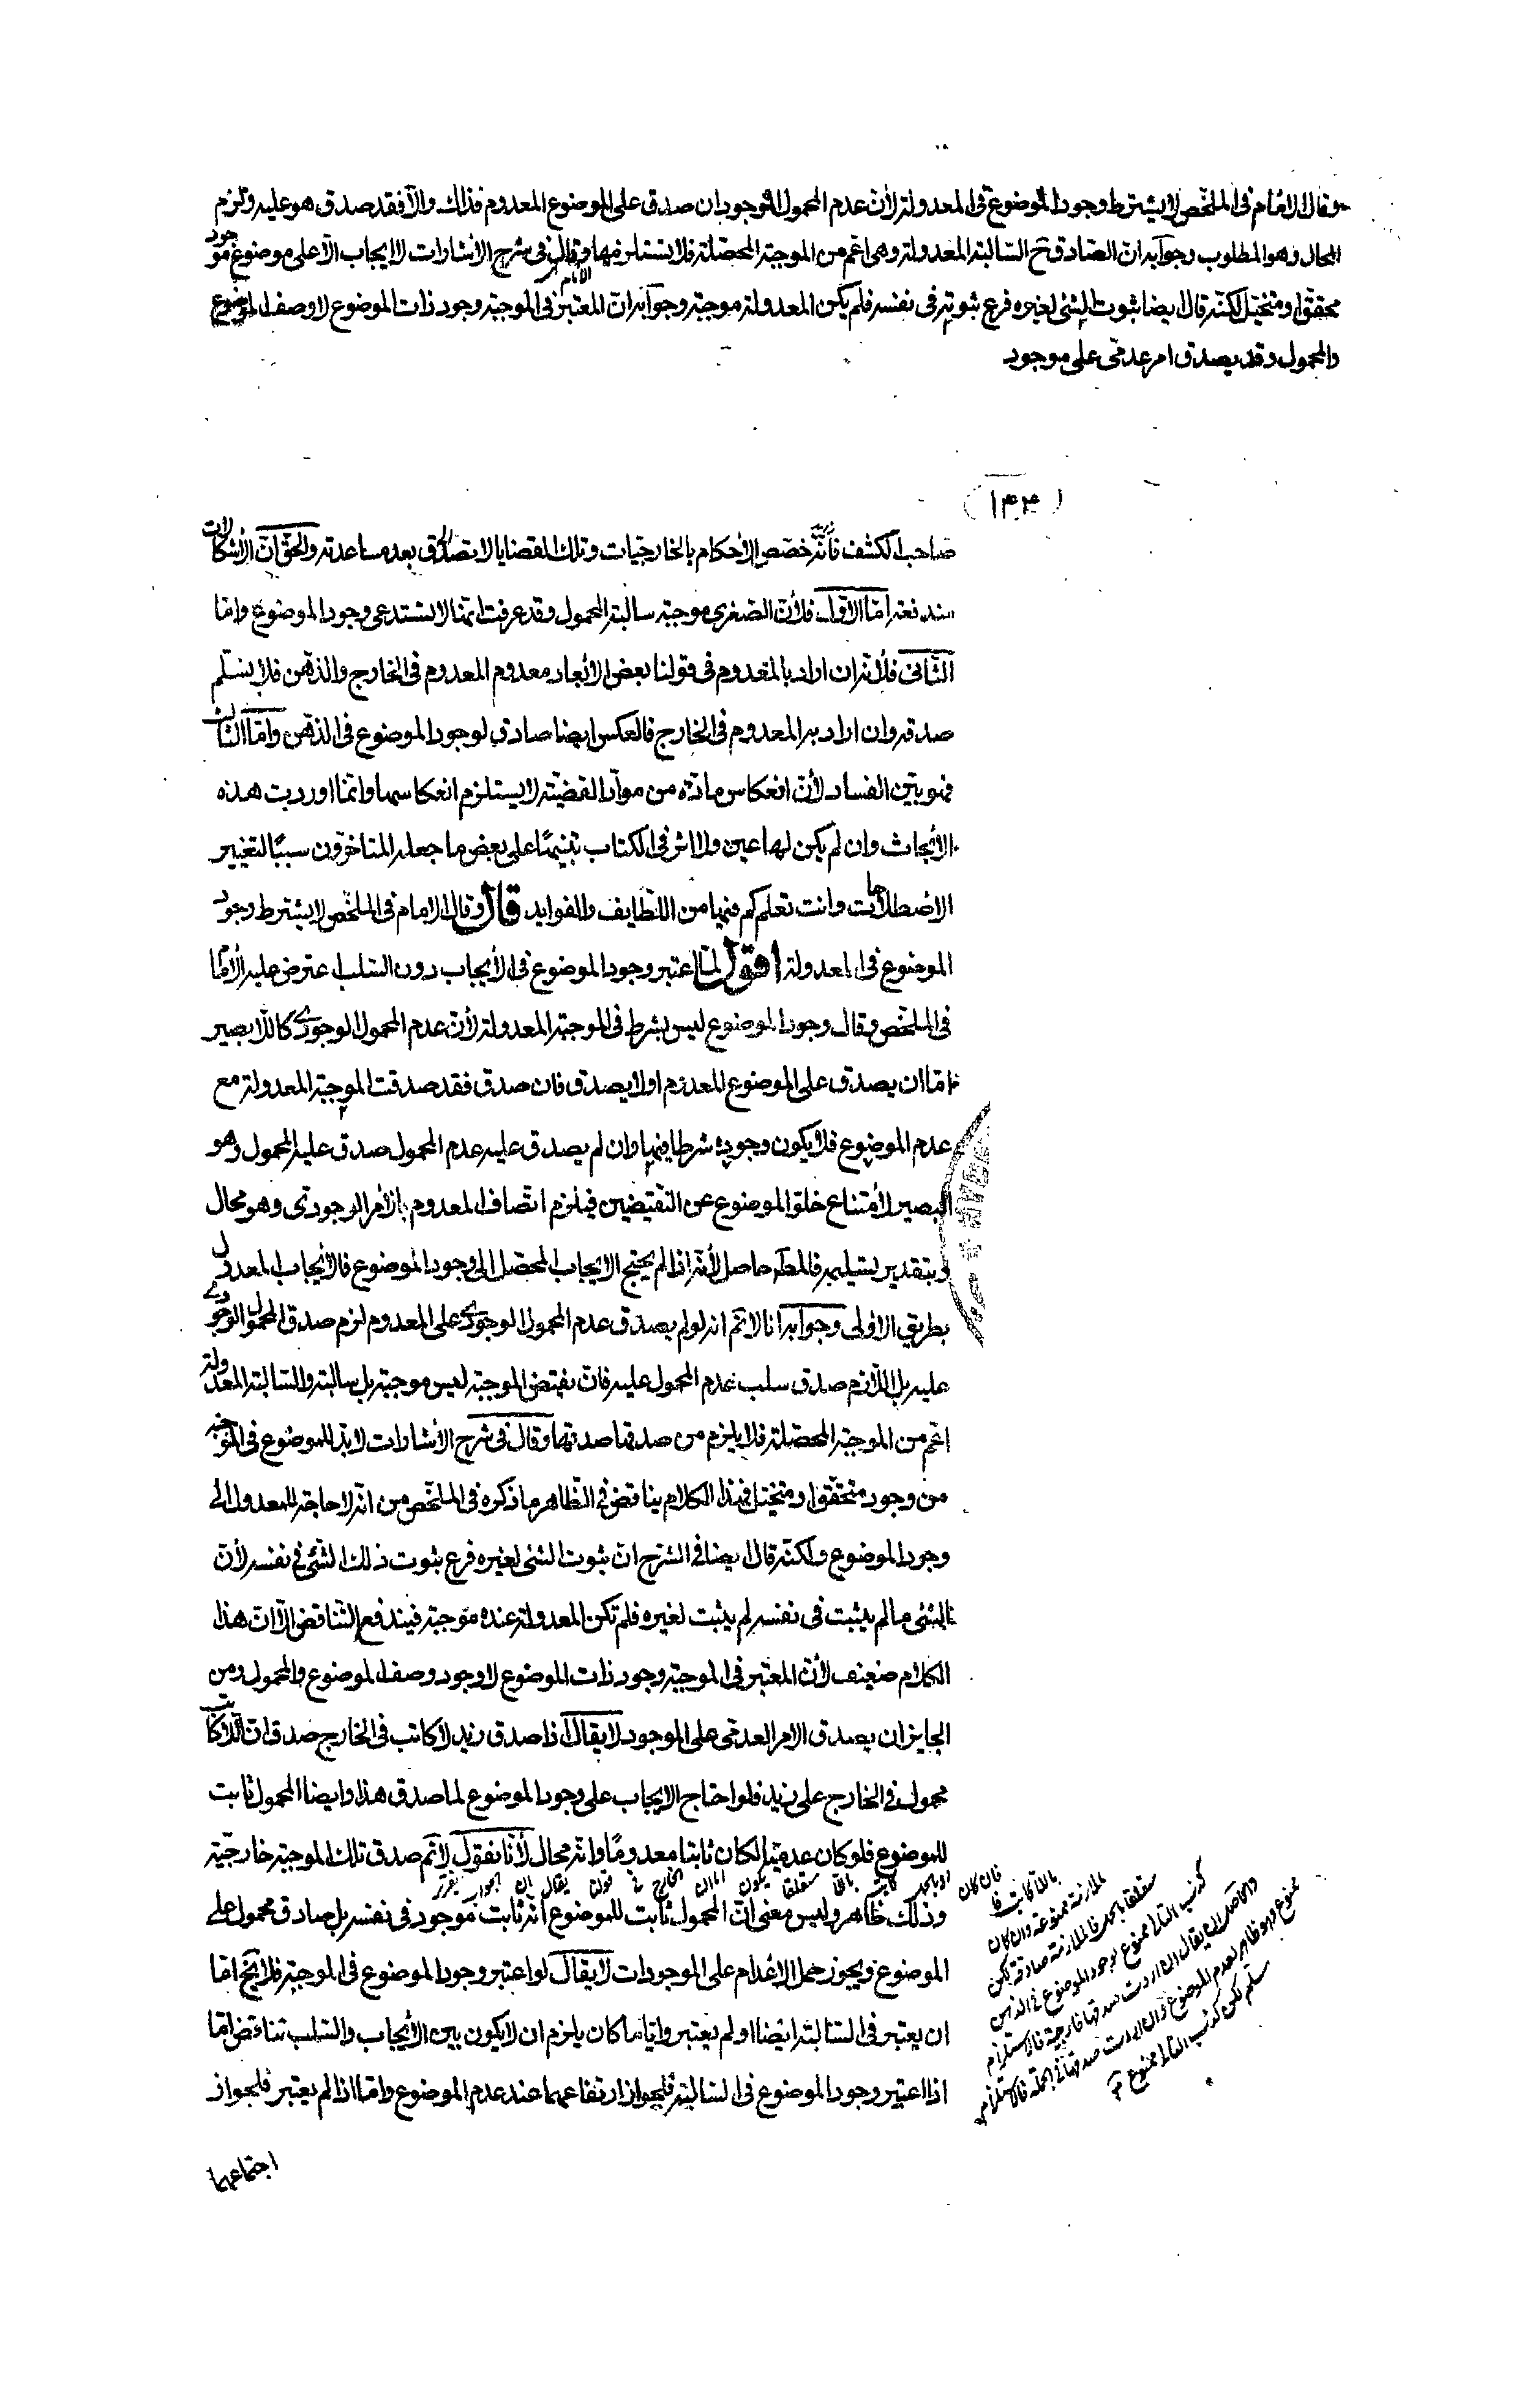 وقال الامام فى الملخص لا يشترط وجود الموضوع فى المعدولة لأن عدم المحمول الوجودى ان صدق على الموضوع المعدوم فذاك والا فقد صدق هو عليه ولزم
المحال وهو المطلوب وجوابه ان الصادق ح السالبة المعدولة وهى اعم من الموجبة المحصلة فلا يستلزمها وقال الامام فى شرح الأشارات لا ايجاب الا على موضوع موجود
محقق او متخيل لكنه قال ايضا ثبوت الشئ لغيره فرع ثبوته فى نفسه فلم يكن المعدولة موجبة وجوابه ان المعتبر فى الموجبة وجود ذات الموضوع لا وصف الموضوع
والمحمول وقد يصدق امر عدمى على موجود
(١٤٤)
صاحب الكشف فأنه خصص الأحكام بالخارجيات وتلك القضايا لا تصدق بعد مساعدته والحق ان الأشكالات
مندفعة اما الاول فلأن الصغرى موجبة سالبة المحمول وقد عرفت انها لا تستدعى وجود الموضوع واما
الثانى فلأنه ان اراد بالمعدوم فى قولنا بعض الأبعاد معدوم المعدوم فى الخارج والذهن فلا نسلم
صدقه وان اراد به المعدوم فى الخارج فالعكس ايضا صادق لوجود الموضوع فى الذهن واما الثالث
فهو بين الفساد لأن انعكاس مادة من مواد القضية لا يستلزم انعكاسها وانما اوردت هذه
الأبحاث وان لم يكن لها عين ولا اثر فى الكتاب تنبيها على بعض ما جعله المتاخرون سببا لتغيير
الاصطلاحات وانت تعلم كم فيها من اللطايف والفوايد قال وقال الامام فى الملخص لا يشترط وجود
الموضوع فى المعدولة اقول لما اعتبر وجود الموضوع فى الأيجاب دون السلب اعترض عليه الأمام
فى الملخص وقال وجود الموضوع ليس بشرط فى الموجبة المعدولة لأن عدم المحمول الوجودى كاللا بصير
اما ان يصدق على الموضوع المعدوم او لا يصدق فان صدق فقد صدقت الموجبة المعدولة مع
عدم الموضوع فلا يكون وجوده شرطا فيها وان لم يصدق عليه عدم المحمول صدق عليه المحمول وهو
البصير لأمتناع خلو الموضوع عن النقيضين فيلزم اتصاف المعدوم بالأمر الوجودى وهو محال
وبتقدير تسليمه فالمط حاصل لأنه اذا لم يحتج الايجاب المحصل الى وجود الموضوع فالأيجاب المعدول
بطريق الاولى وجوابه انا لا نم انه لو لم يصدق عدم المحمول الوجودى على المعدوم لزم صدق المحمول الوجودى
عليه بل اللازم صدق سلب عدم المحمول عليه فان نقيض الموجبة ليس موجبة بل سالبة والسالبة المعدولة
اعم من الموجبة المحصلة فلا يلزم من صدقها صدقها وقال فى شرح الأشارات لا بد للموضوع فى الموجبة
من وجود متحقق او متخيل فهذا الكلام يناقض فى الظاهر ما ذكره فى الملخص من انه لا حاجة للمعدول الى
وجود الموضوع ولكنه قال ايضا فى الشرح ان ثبوت الشئ لغيره فرع ثبوت ذلك الشئ فى نفسه لأن
الشئ ما لم يثبت فى نفسه لم يثبت لغيره فلم تكن المعدولة عنده موجبة فيندفع التناقض الا ان هذا
الكلام ضعيف لأن المعتبر فى الموجبة وجود ذات الموضوع لا وجود وصف الموضوع والمحمول ومن
الجايز ان يصدق الامر العدمى على الموجود لا يقال اذا صدق زيد لا كاتب فى الخارج صدق ان اللاكاتب
محمول فى الخارج على زيد فلو احتاج الايجاب على وجود الموضوع لما صدق هذا وايضا المحمول ثابت
للموضوع فلو كان عدميا لكان ثابتا معدوما وانه محال لأنا نقول لا نم صدق تلك الموجبة خارجية
وذلك ظاهر وليس معنى ان المحمول ثابت للموضوع انه ثابت موجود فى نفسه بل صادق محمول على
الموضوع ويجوز حمل الاعدام على الموجودات لا يقال لو اعتبر وجود الموضوع فى الموجبة فلا يخ اما
ان يعتبر فى السالبة ايضا او لم يعتبر واياما كان يلزم ان لا يكون بين الأيجاب والسلب تناقض اما
اذا اعتبر وجود الموضوع فى السالبة فلجواز ارتفاعهما عند عدم الموضوع واما اذا لم يعتبر فلجواز
اجتماعهما
فان كان
الملازمة ممنوعة وان كان
متعلقا بالحمل فالملازمة صادقة لكن
كذب التالى ممنوع لوجود الموضوع فى الذهن
والحاصل ان يقال ان اردت صدقها خارجية فالاستلزام
ممنوع وهو ظاهر لعدم الموضوع وان اردت صدقها فى الجملة فالاستلزام
مسلم لكن كذب التالى ممنوع